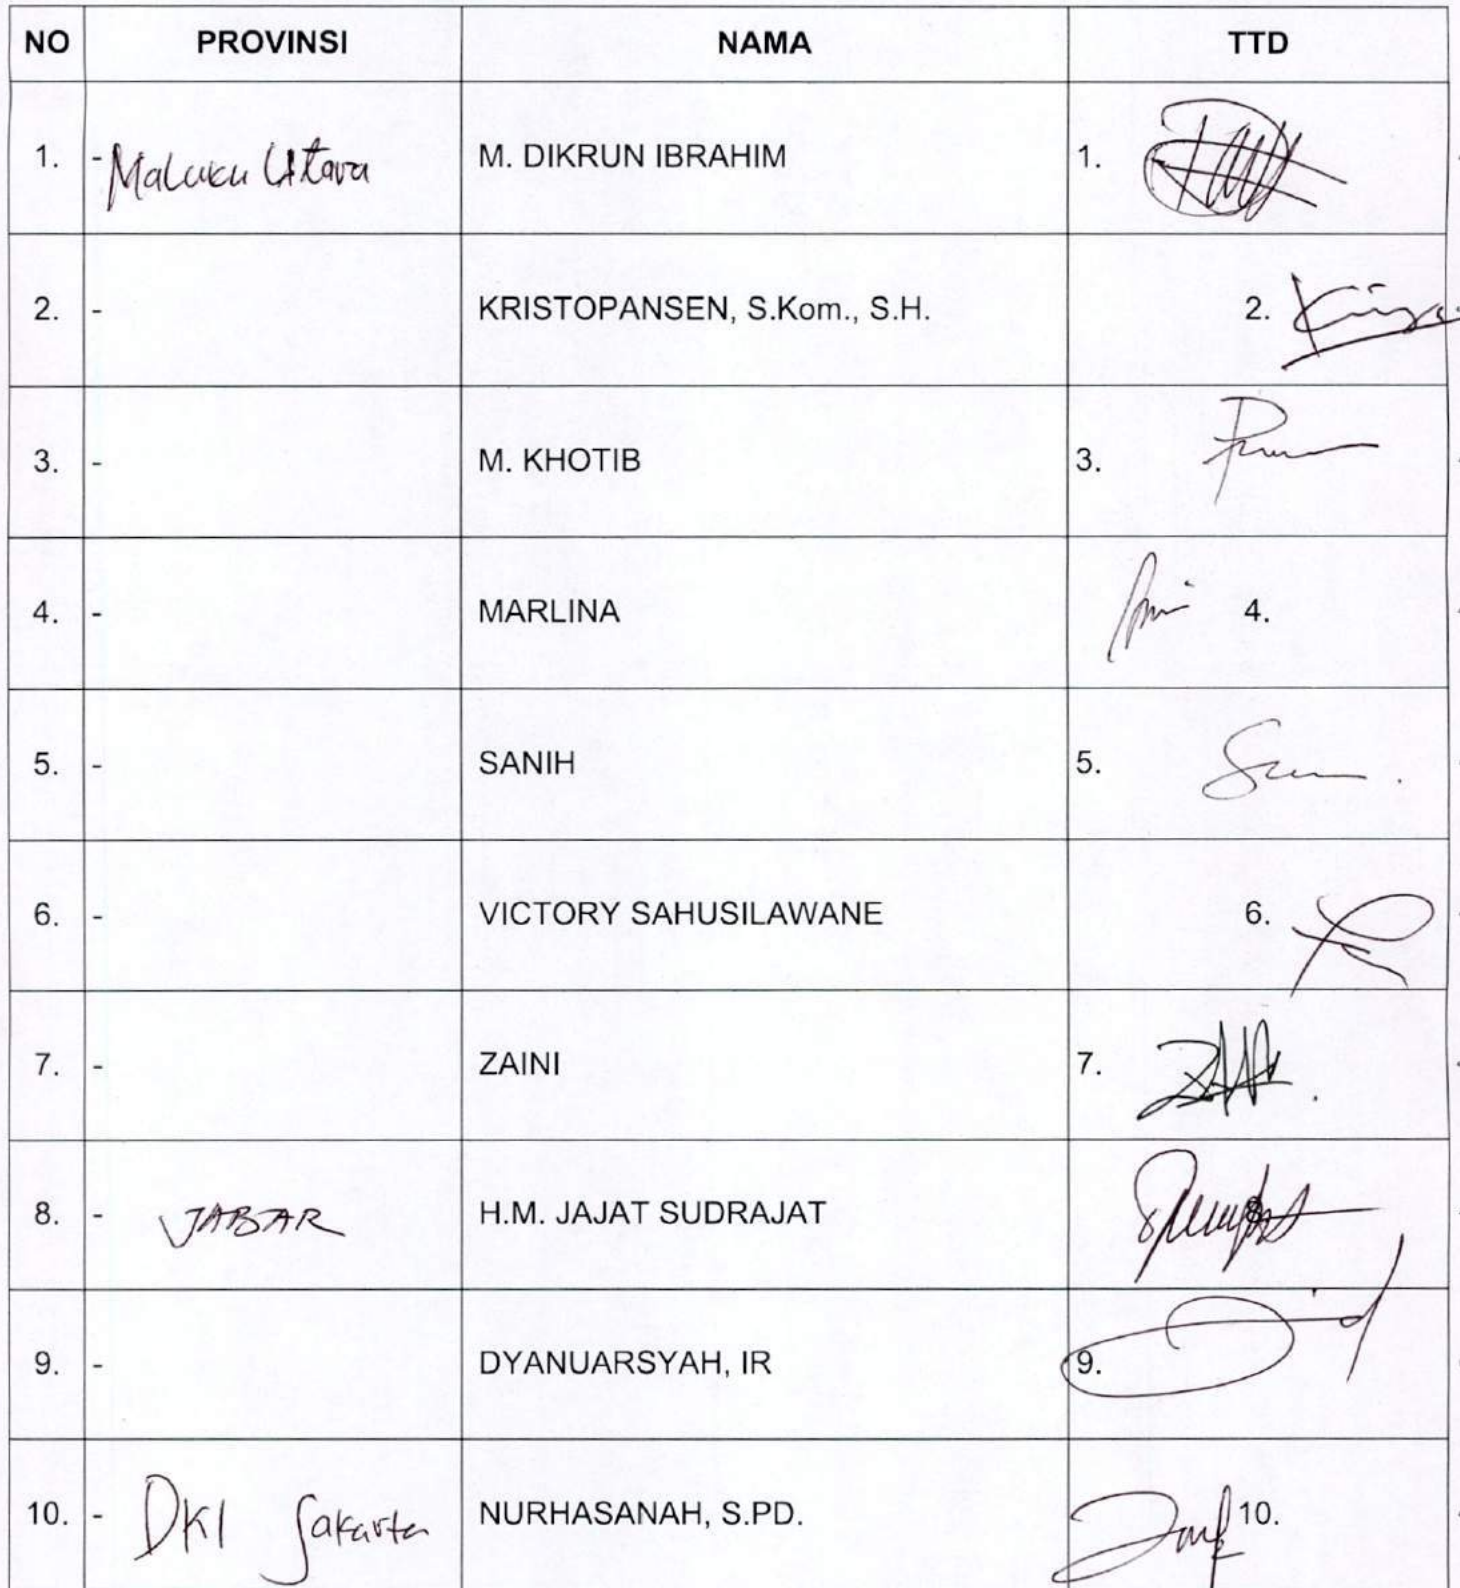 NO PROVINSI NAMA TTD
1. - Maluku Utara M. DIKRUN IBRAHIM 1.
2. - KRISTOPANSEN, S.Kom., S.H. 2.
3. - M. KHOTIB 3.
4. - MARLINA 4.
5. - SANIH 5.
6. - VICTORY SAHUSILAWANE 6.
7. - ZAINI 7.
8. - JABAR H.M. JAJAT SUDRAJAT 8.
9. - DYANUARSYAH, IR 9.
10. - DKI Jakarta NURHASANAH, S.PD. 10.